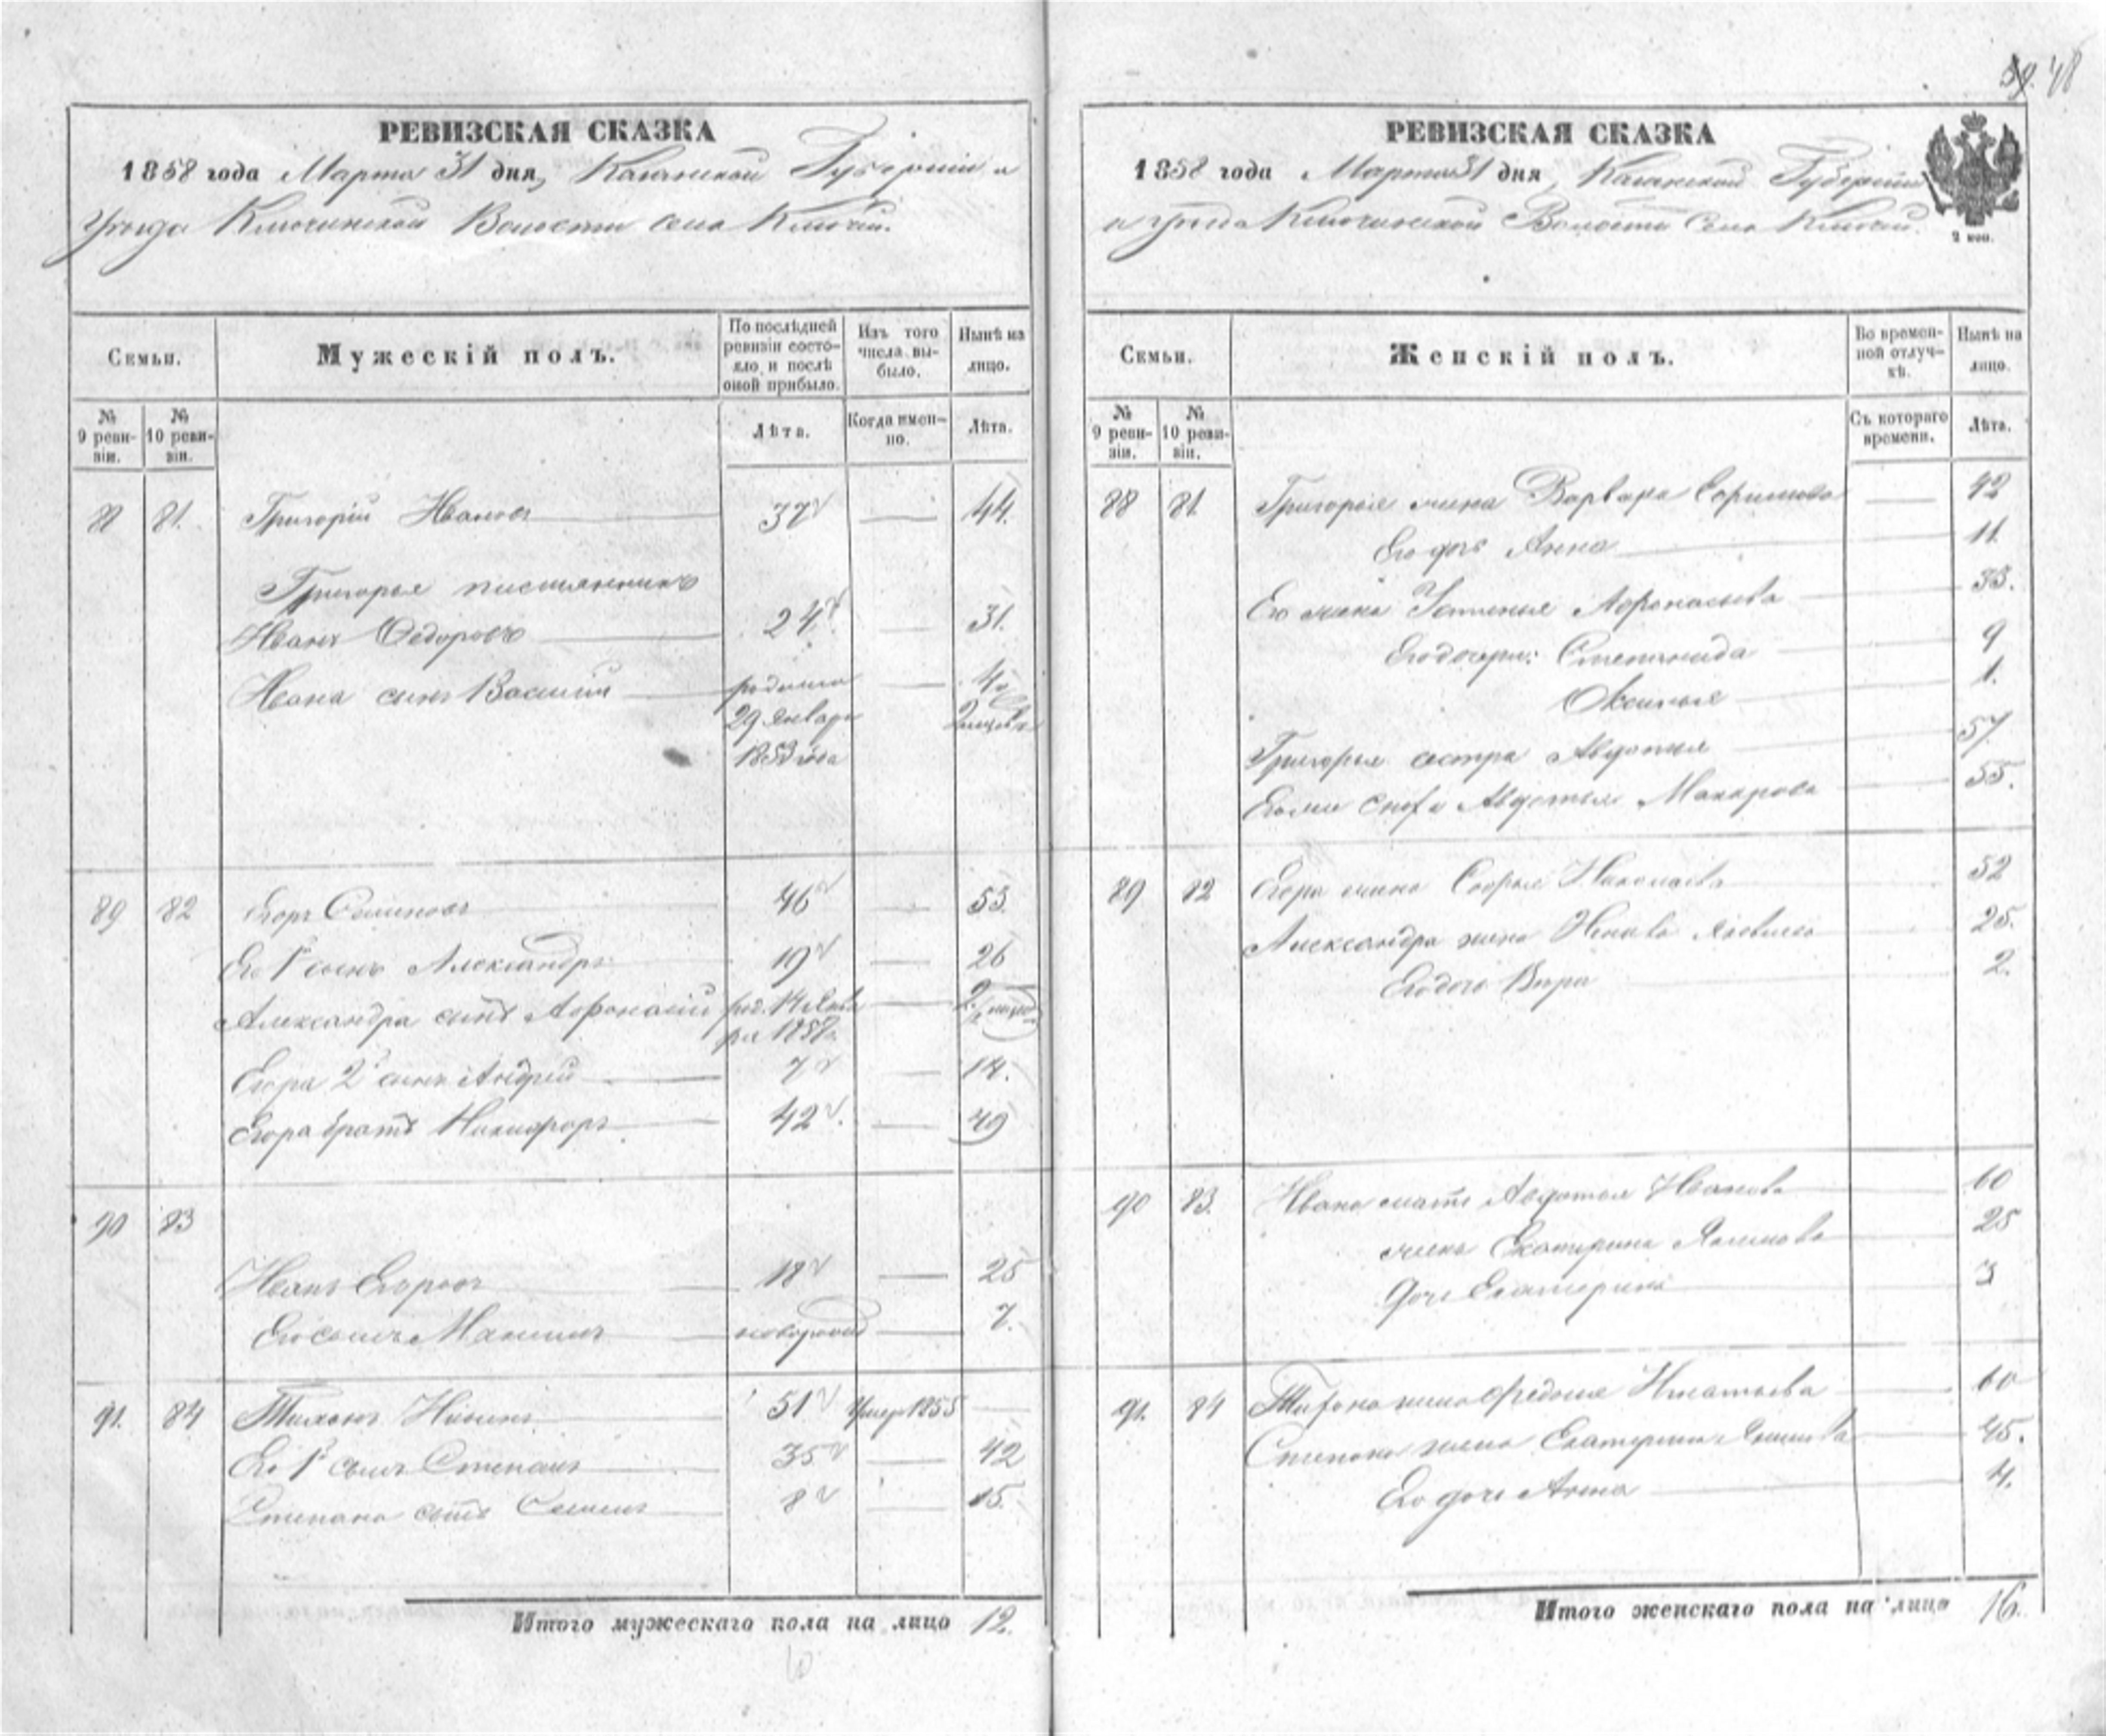 39. 48
РЕВИЗСКАЯ СКАЗКА
1858 года Марта 31 дня, Казанской Губернии и
уезда Ключинской Волости села Ключи.
Семьи.
Мужескій полъ.
По послѣдней
ревизіи состо-
яло и послѣ
оной прибыло.
Изъ того
числа вы-
было.
Нынѣ на
лицо.
№
9 реви-
зіи.
№
10 реви-
зіи.
Лѣта.
Когда имен-
но.
Лѣта.
88 81. Григорій Ивановъ 37 44.
Григорья племянникъ
Иванъ Ѳедоровъ 24 31.
Ивана сынъ Василій родился
29 Января
1853 года
89 82 Егоръ Семеновъ 46 53.
Его 1й сынъ Александръ 19 26
Александра сынъ Афонасій род. 14 Янва
ря 1858
Егора 2й сынъ Андрей 7 14.
Егора братъ Никифоръ 42. 49
90 83
Иванъ Егоровъ 18 25
Его сынъ Максимъ новорожд 7.
91. 84 Тихонъ 51 Умеръ 1855
Его 1й сынъ Степанъ 35 42
Степана сынъ Семенъ 8 15.
Итого мужескаго пола на лицо 12.
РЕВИЗСКАЯ СКАЗКА
1858 года Марта 31 дня, Казанской Губерніи
и уезда Ключинской Волости Села Ключи.
2 коп.
Семьи.
Женскій полъ.
Во времен-
ной отлуч-
кѣ.
Нынѣ на
лицо.
№
9 реви-
зіи.
№
10 реви-
зіи.
Съ котораго
времени.
Лѣта.
88 81. Григорья жена Варвара 42
Его дочь Анна 11.
Его жена Устинья Афонасьева 33.
Его дочери: Степанида 9
Оксинья 1.
Григорья сестра Авдотья 57
сноха Авдотья Макарова 55.
89 82 Егора жена Софья Николаева 52
Александра жена Яковлева 25.
Его дочь Вѣра 2.
90 83. Ивана мать Авдотья Иванова 60
жена Екатерина 25
дочь Екатерина 3
91. 84 Тихона жена Федосья Игнатьева 60
Степана жена Екатерина 45.
Его дочь Анна 4.
Итого женскаго пола на лицо 16.